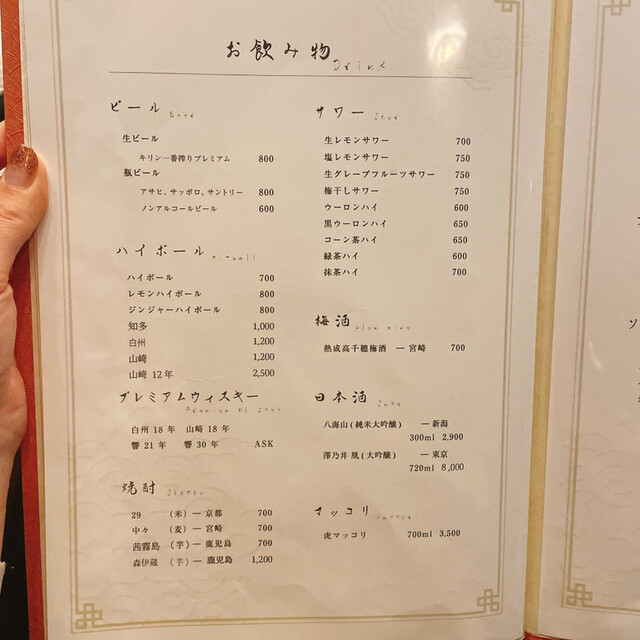 お飲み物
Drink
ビール
Beer
生ビール
キリン一番搾りプレミアム 800
瓶ビール
アサヒ、サッポロ、サントリー 800
ノンアルコールビール 600
ハイボール
ハイボール 700
レモンハイボール 800
ジンジャーハイボール 800
知多 1,000
白州 1,200
山崎 1,200
山崎 12年 2,500
プレミアムウィスキー
白州 18年 山崎 18年
響 21年 響 30年 ASK
焼酎
29 (米)—京都 700
中々 (麦)—宮崎 700
茜霧島 (芋)—鹿児島 700
森伊蔵 (芋)—鹿児島 1,200
サワー
Sour
生レモンサワー 700
塩レモンサワー 750
生グレープフルーツサワー 750
梅干しサワー 750
ウーロンハイ 600
黒ウーロンハイ 650
コーン茶ハイ 650
緑茶ハイ 600
抹茶ハイ 700
梅酒
熟成高千穂梅酒 —宮崎 700
日本酒
八海山(純米大吟醸) —新潟
300ml 2,900
澤乃井 凰(大吟醸) —東京
720ml 8,000
マッコリ
虎マッコリ 700ml 3,500
ソ